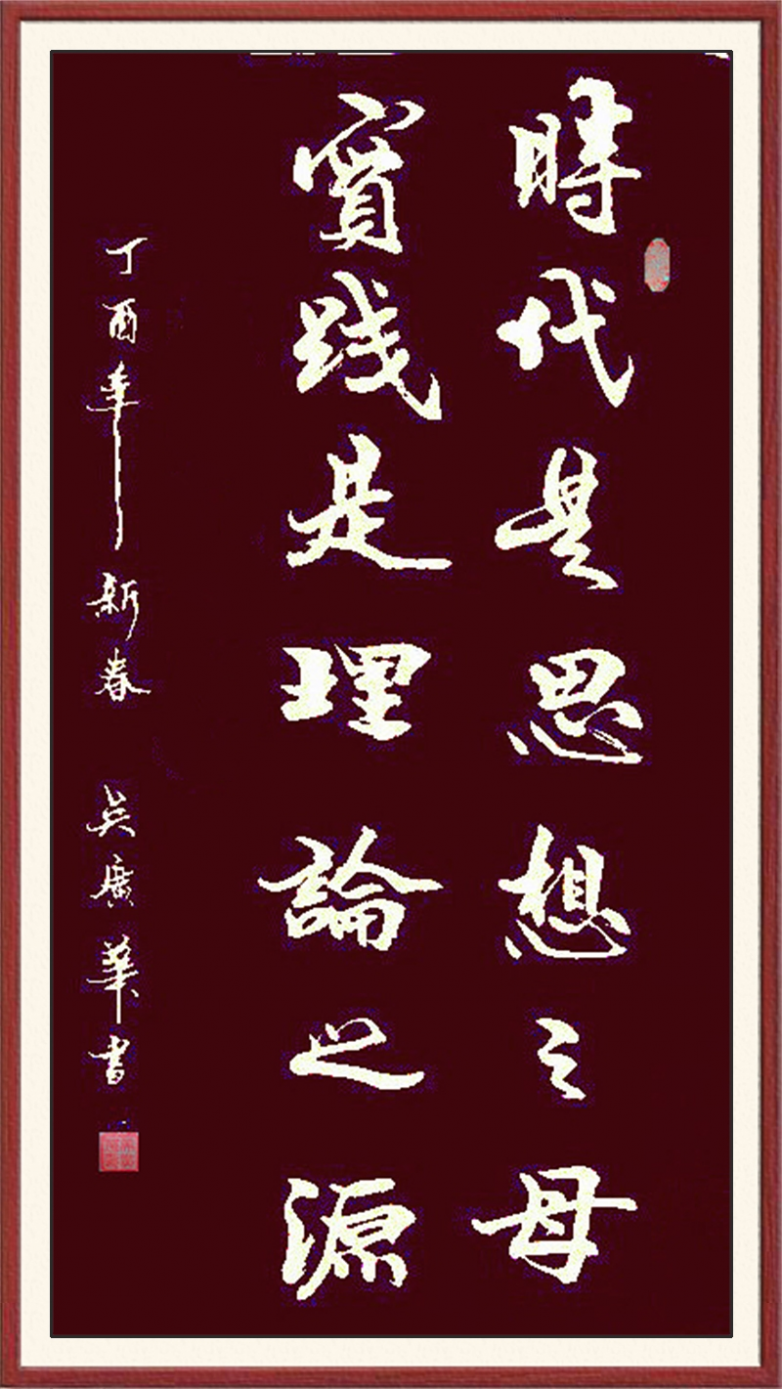 時代是思想之母
實践是理論之源
丁酉年新春 吳廣華書